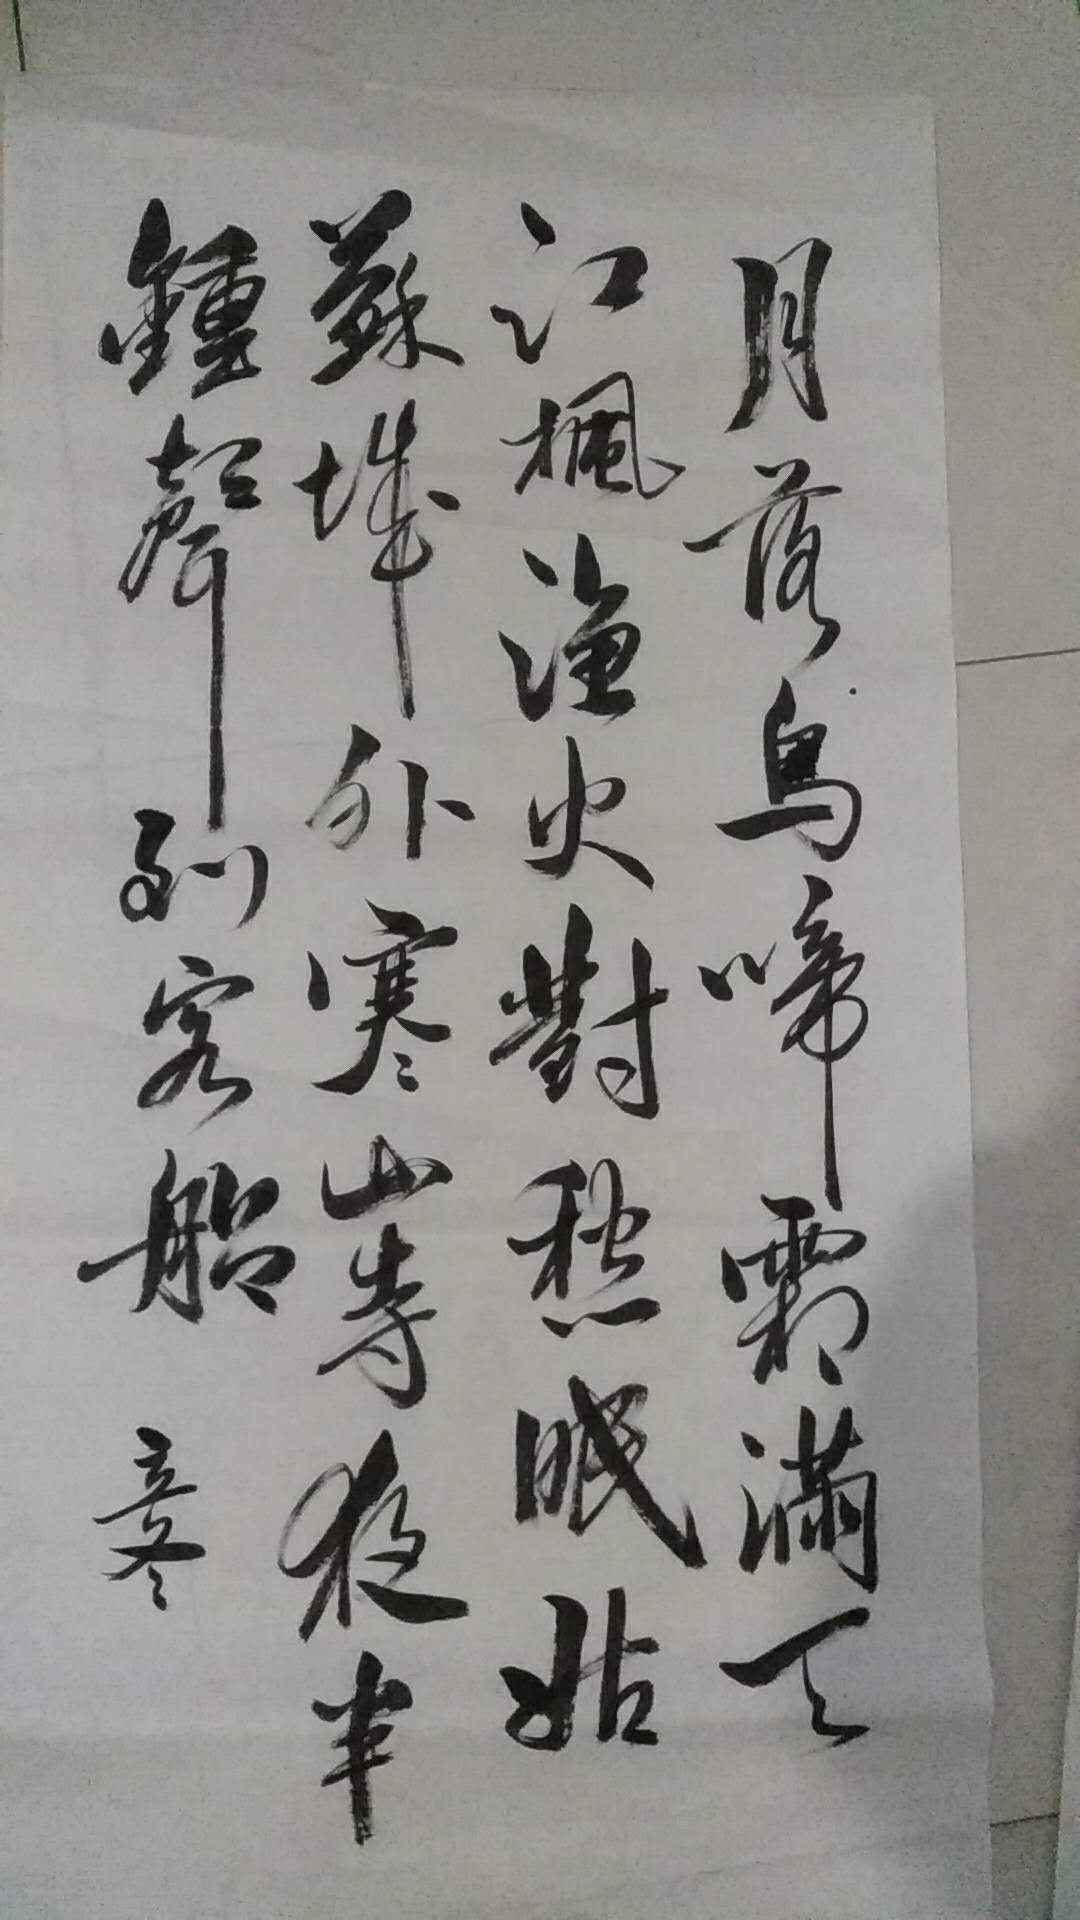 月落烏啼霜滿天
江楓漁火對愁眠姑
蘇城外寒山寺夜半
鍾聲到客船